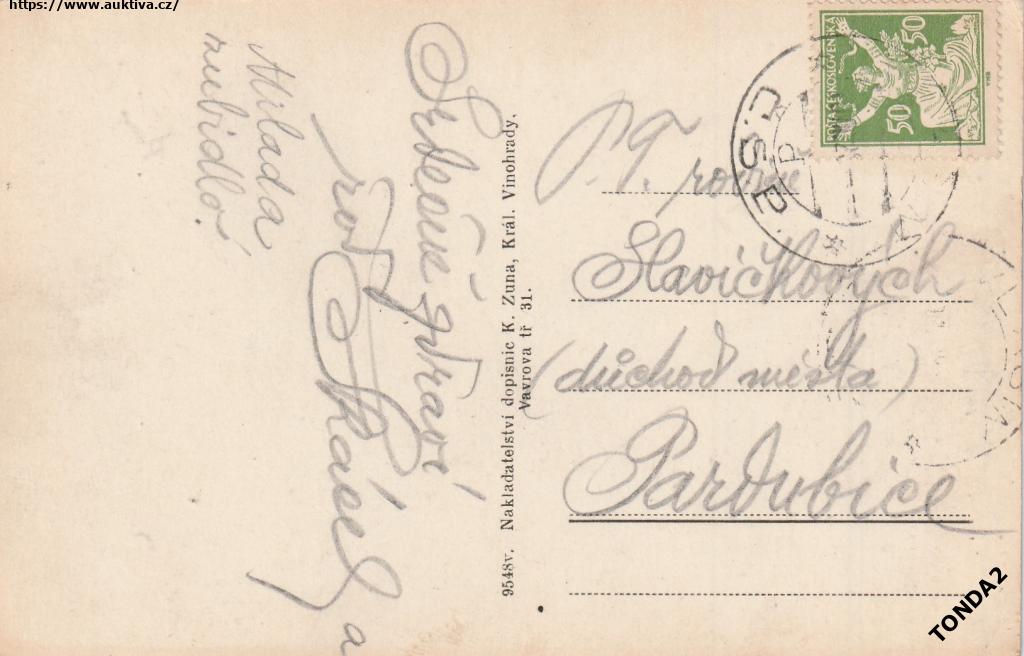 https://www.auktiva.cz/
Srdečně zdraví
rod. Skácel a
Milada
nubidlo.
9548v. Nakladatelství dopisnic K. Zuna, Král. Vinohrady,
Vavrova tř 31.
POŠTA ČESKOSLOVENSKÁ
50 50
P. T. rodina
Slavíčkových
(důchod města)
Pardubice
TONDA2